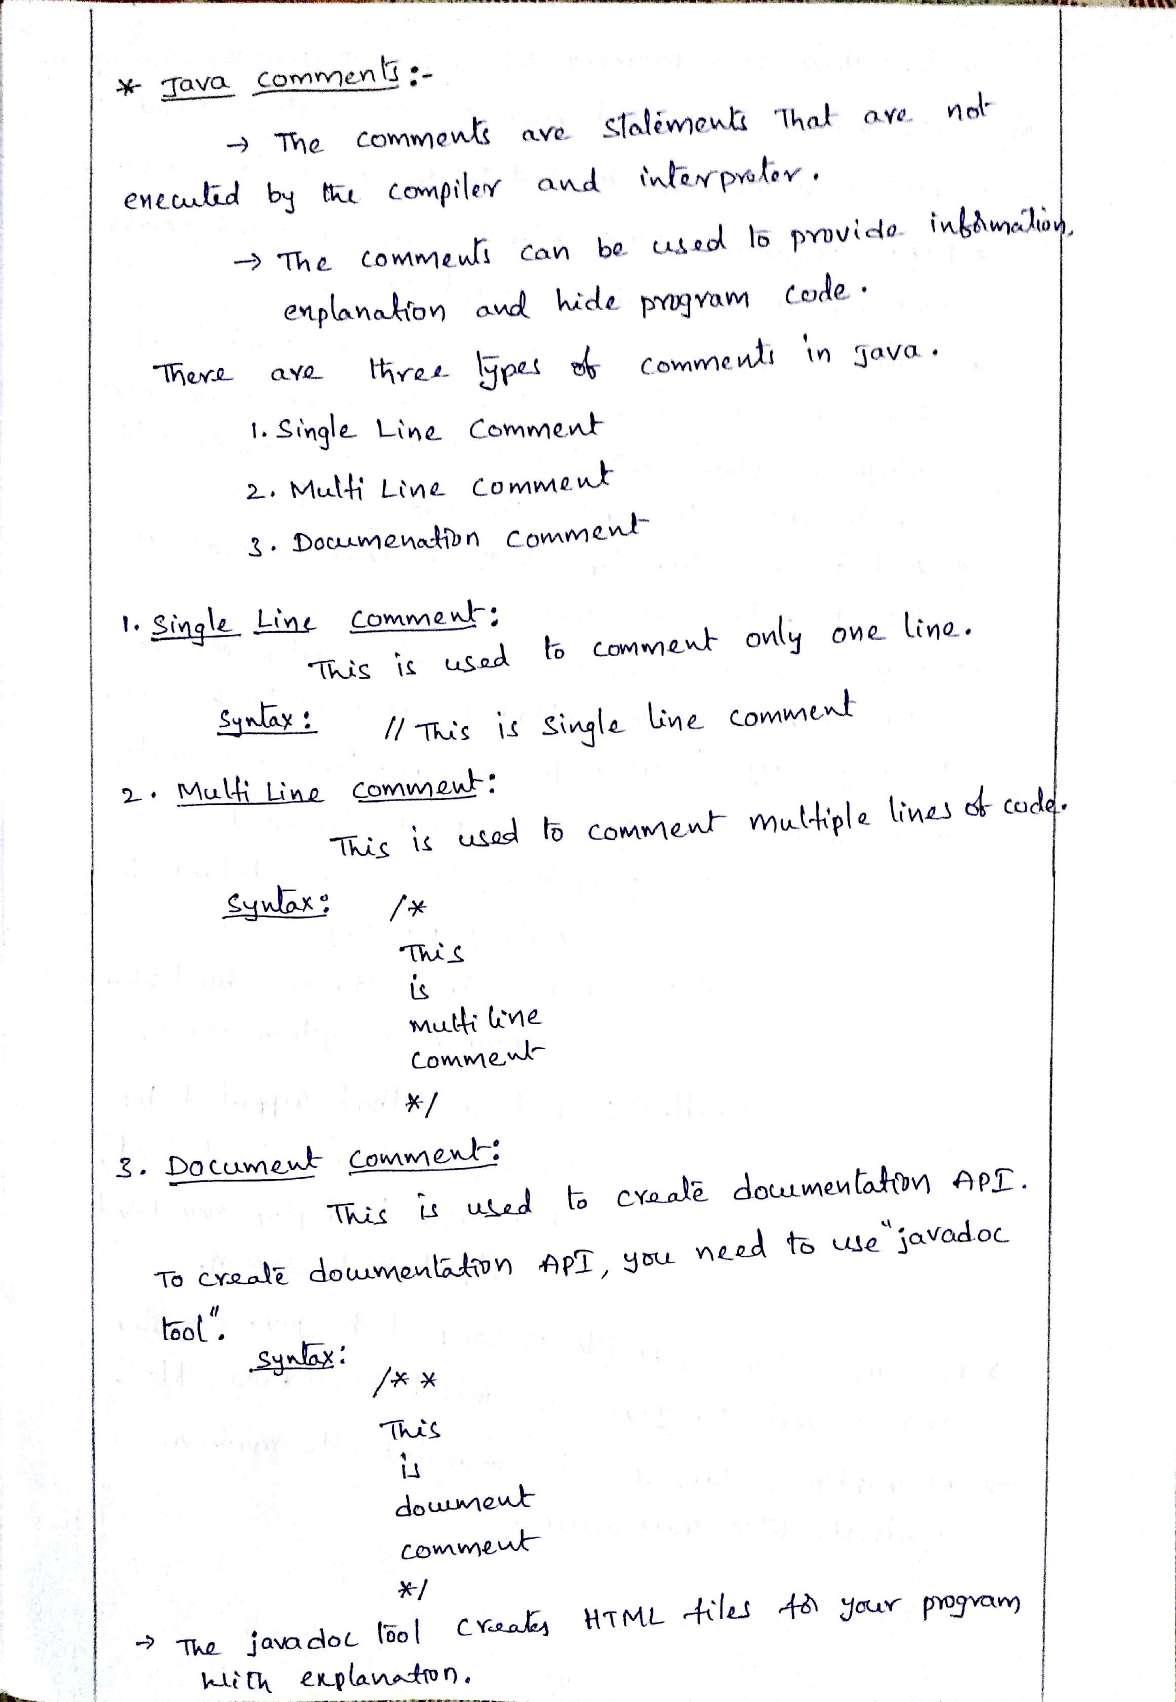 * Java comments :-
→ The comments are statements That are not
executed by the compiler and interpreter.
→ The comments can be used to provide information,
explanation and hide program code.
There are three types of comments in java.
1. Single Line Comment
2. Multi Line comment
3. Documenation comment
1. Single Line comment:
This is used to comment only one line.
Syntax: // This is single line comment
2. Multi Line comment:
This is used to comment multiple lines of code.
Syntax: /*
This
is
multi line
comment
*/
3. Document comment:
This is used to create documentation API.
To create documentation API, you need to use "javadoc
tool".
syntax:
/**
This
is
document
comment
*/
→ The javadoc tool creates HTML files for your program
with explanation.